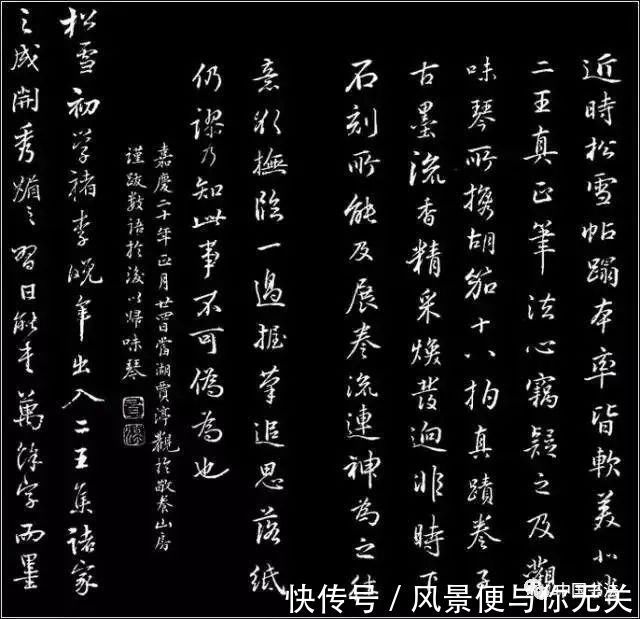 近時松雪帖蹋本率皆軟美小
二王真正筆法心竊疑之及觀
味琴所携胡笳十八拍真蹟卷子
古墨流香精采焕發迥非時下
石刻所能及展卷流連神為之往
意欲撫臨一過握筆追思落紙
仍謬乃知此事不可偽為也
嘉慶二十年正月廿四日當湖賈淳觀於敬養山房
謹跋數語於後以歸味琴
松雪初學褚李晚年出入二王集諸家
之成開秀媚之習日能書萬餘字而墨
中国书法
快传号 / 风景便与你无关